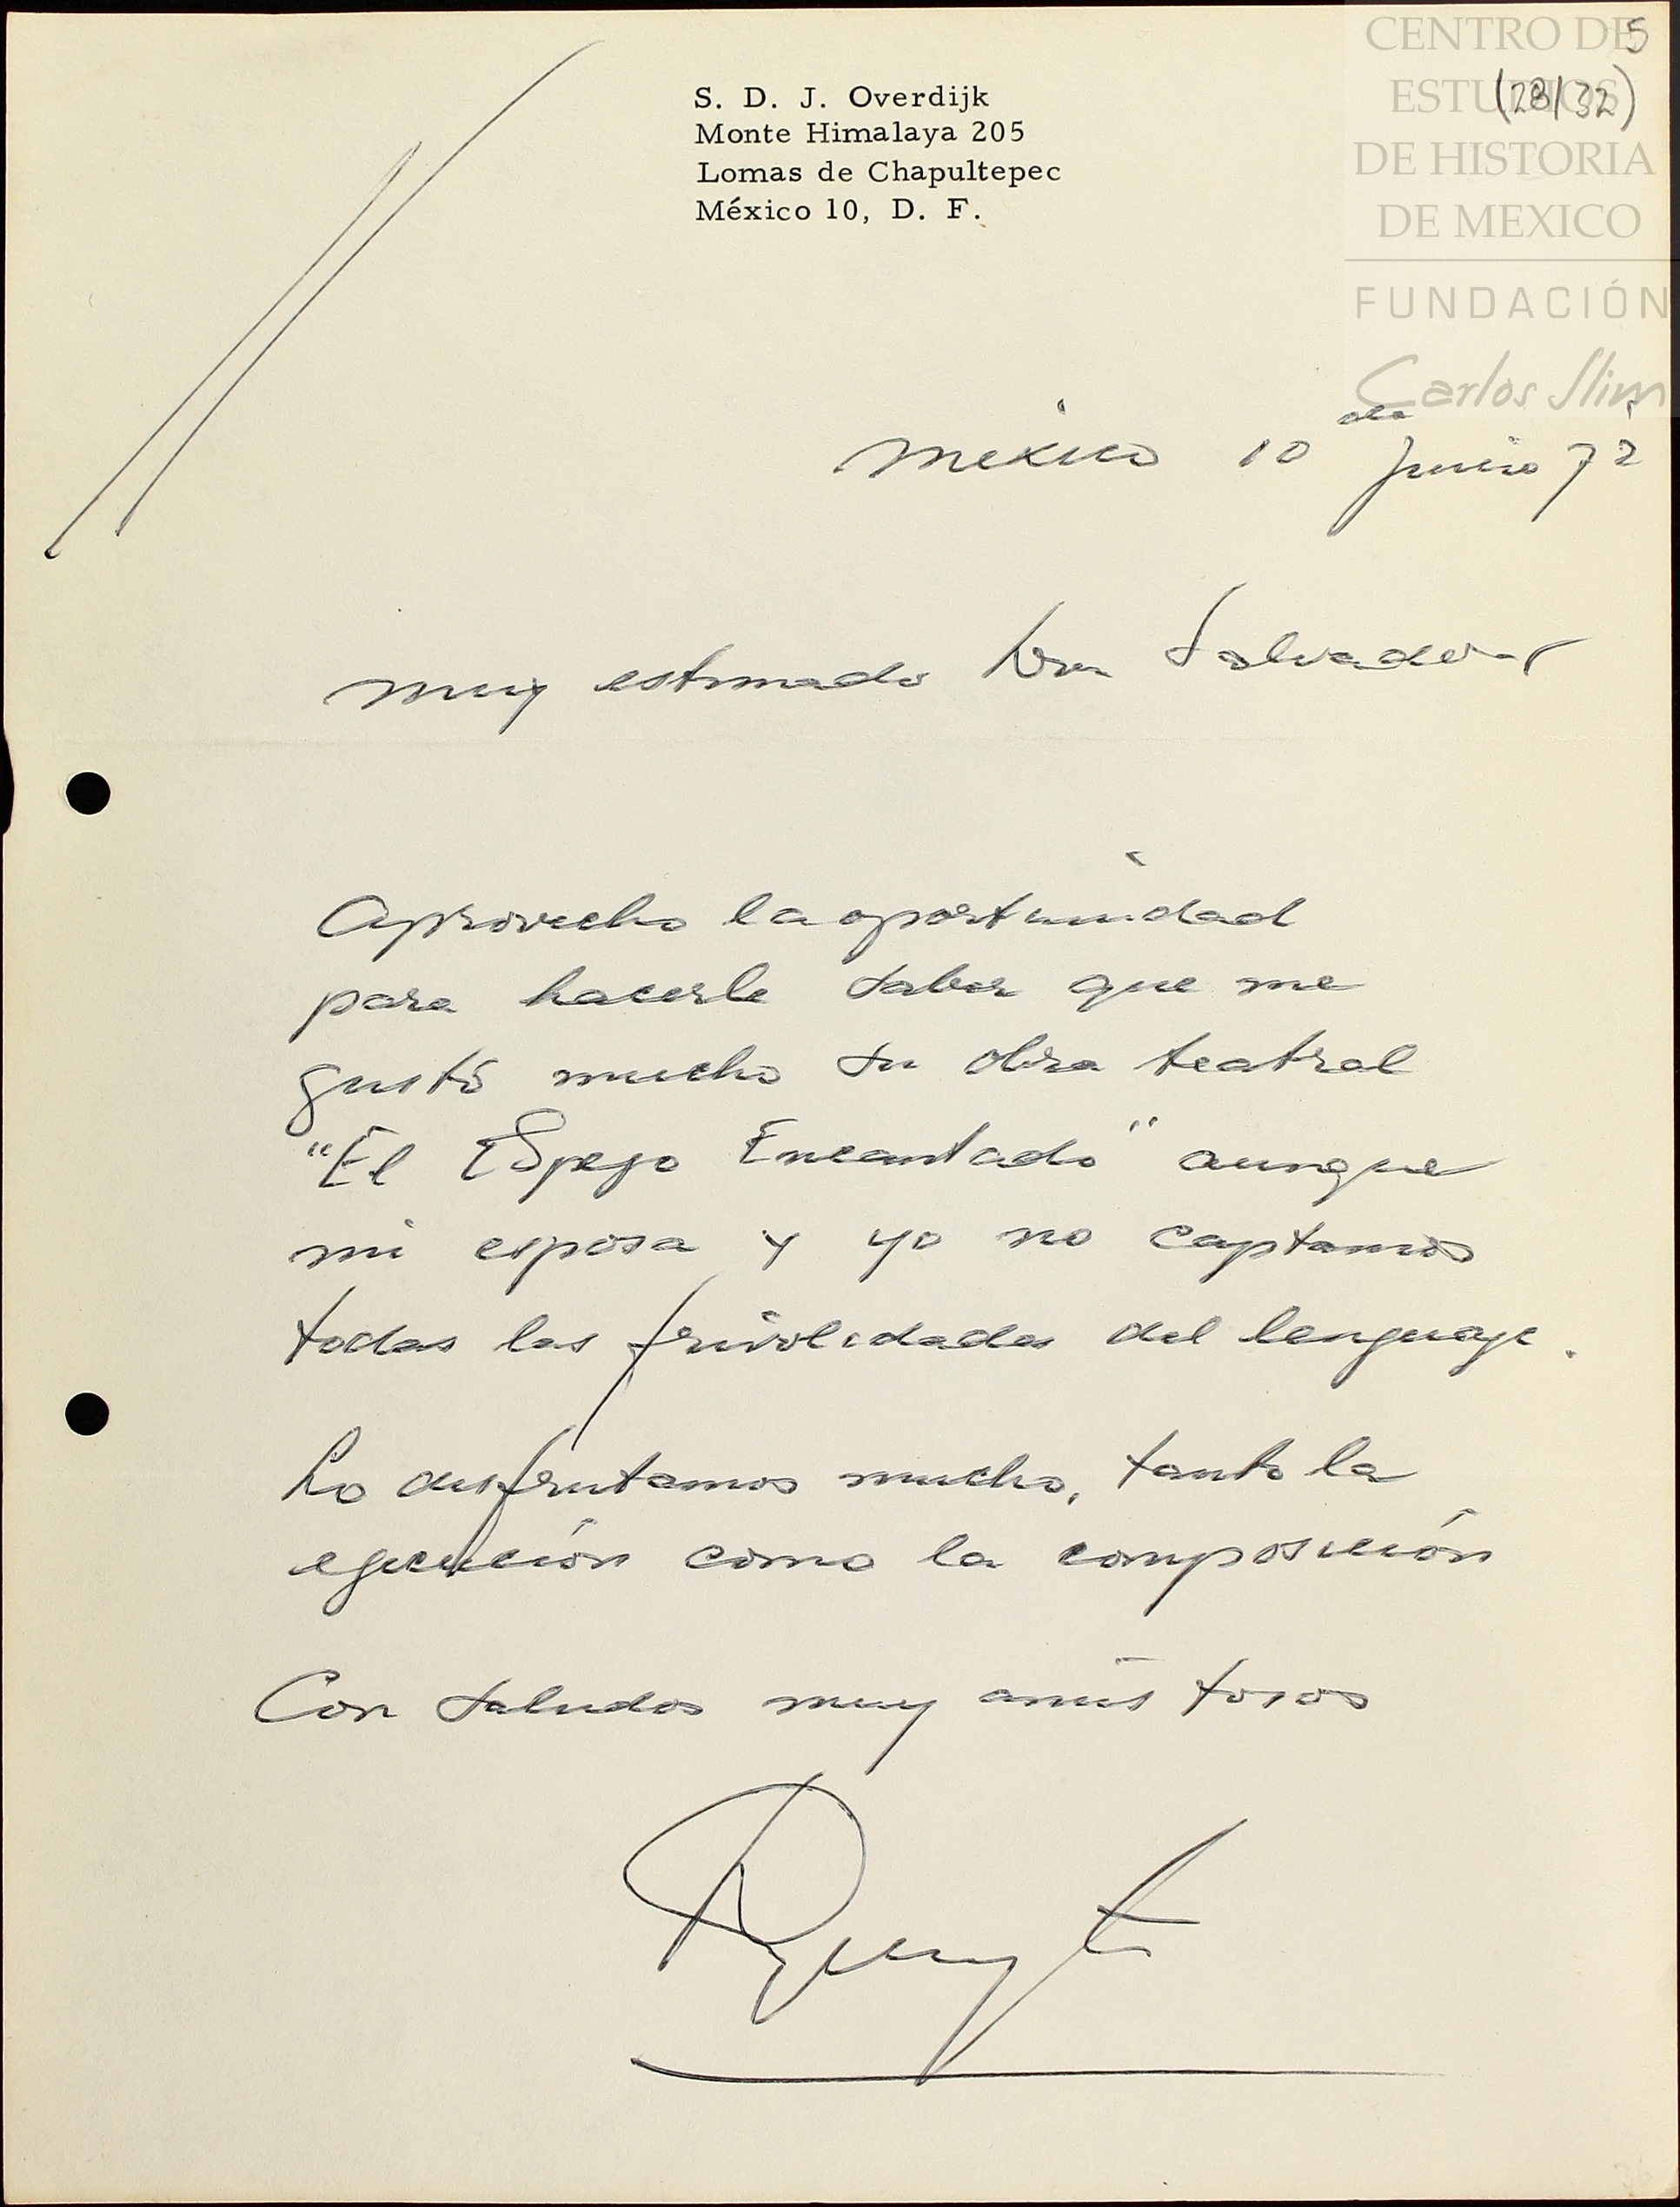 CENTRO DE
ESTUDIOS
DE HISTORIA
DE MEXICO
FUNDACIÓN
Carlos Slim
5
(28/32)
S. D. J. Overdijk
Monte Himalaya 205
Lomas de Chapultepec
México 10, D. F.
Mexico 10 de Junio 72
Muy estimado Don Salvador
Aprovecho la oportunidad
para hacerle saber que me
gustó mucho su obra teatral
"El Espejo Encantado" aunque
mi esposa y yo no captamos
todas las frivolidades del lenguaje.
Lo disfrutamos mucho, tanto la
ejecución como la composición
Con saludos muy amistosos